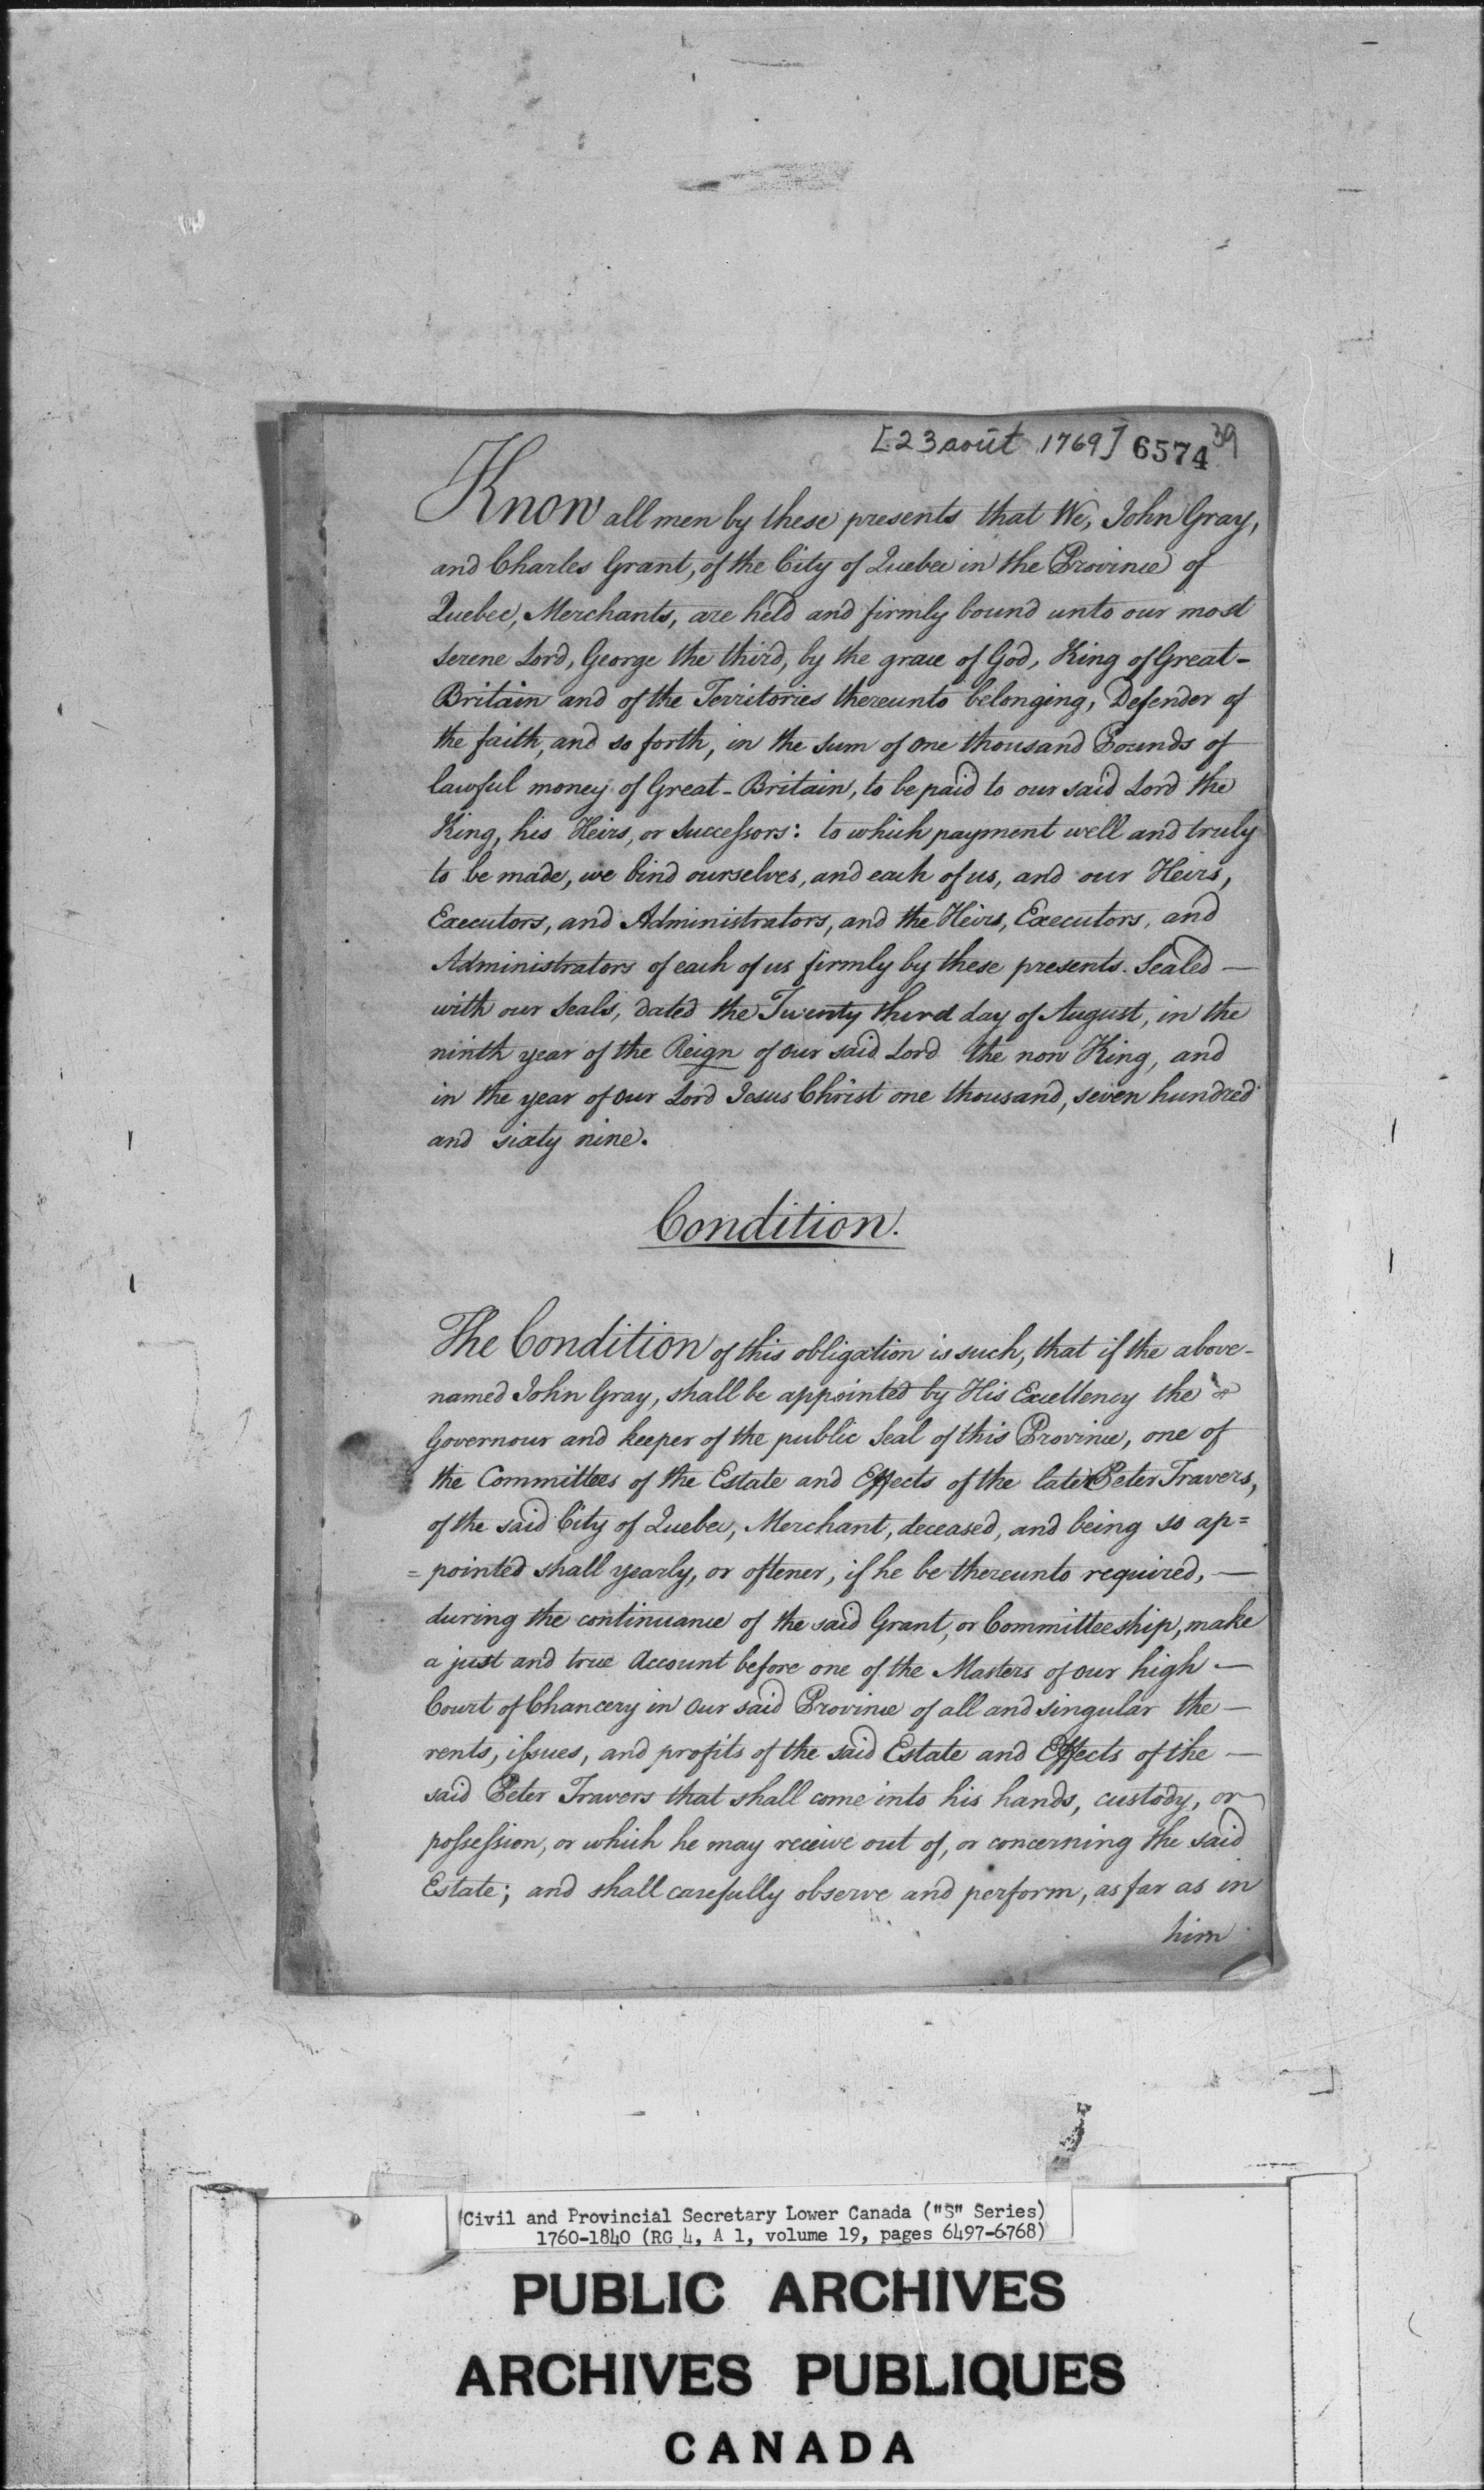 [23 août 1769] 6574 39
Know all men by these presents that We, John Gray,
and Charles Grant, of the City of Quebec in the Province of
Quebec, Merchants, are held and firmly bound unto our most
serene Lord, George the third, by the grace of God, King of Great-
Britain and of the Territories thereunto belonging, Defender of
the faith, and so forth, in the sum of one thousand Pounds of
lawful money of Great-Britain, to be paid to our said Lord the
King, his Heirs, or Successors: to which payment well and truly
to be made, we bind ourselves, and each of us, and our Heirs,
Executors, and Administrators, and the Heirs, Executors, and
Administrators of each of us firmly by these presents. Sealed —
with our Seals, dated the Twenty third day of August, in the
ninth year of the Reign of our said Lord the now King, and
in the year of our Lord Jesus Christ one thousand, seven hundred
and sixty nine.
Condition.
The Condition of this obligation is such, that if the above-
named John Gray, shall be appointed by His Excellency the
Governour and keeper of the public Seal of this Province, one of
the Committees of the Estate and Effects of the late Peter Travers,
of the said City of Quebec, Merchant, deceased, and being so ap=
=pointed shall yearly, or oftener, if he be thereunto required, —
during the continuance of the said Grant, or Committeeship, make
a just and true Account before one of the Masters of our high —
Court of Chancery in our said Province of all and singular the —
rents, issues, and profits of the said Estate and Effects of the —
said Peter Travers that shall come into his hands, custody, or
possession, or which he may receive out of, or concerning the said
Estate; and shall carefully observe and perform, as far as in
him
Civil and Provincial Secretary Lower Canada ("S" Series)
1760-1840 (RG 4, A 1, volume 19, pages 6497-6768)
PUBLIC ARCHIVES
ARCHIVES PUBLIQUES
CANADA